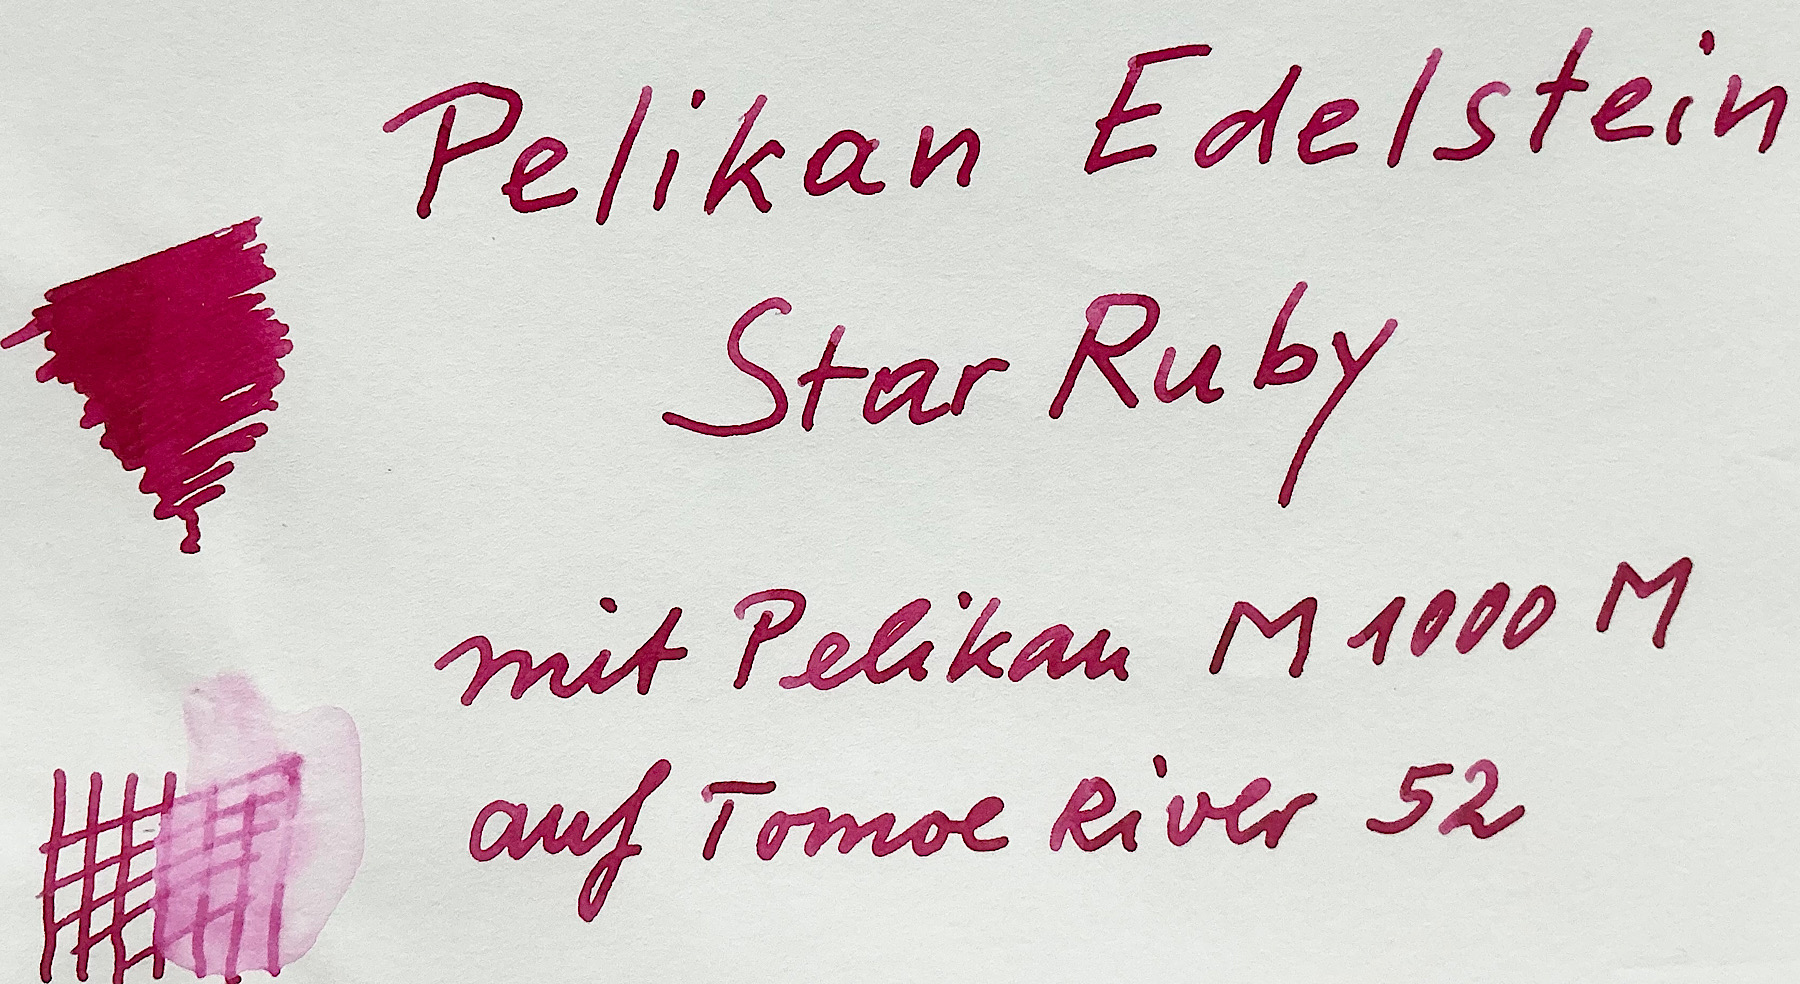 Pelikan Edelstein
Star Ruby
mit Pelikan M 1000 M
auf Tomoe River 52